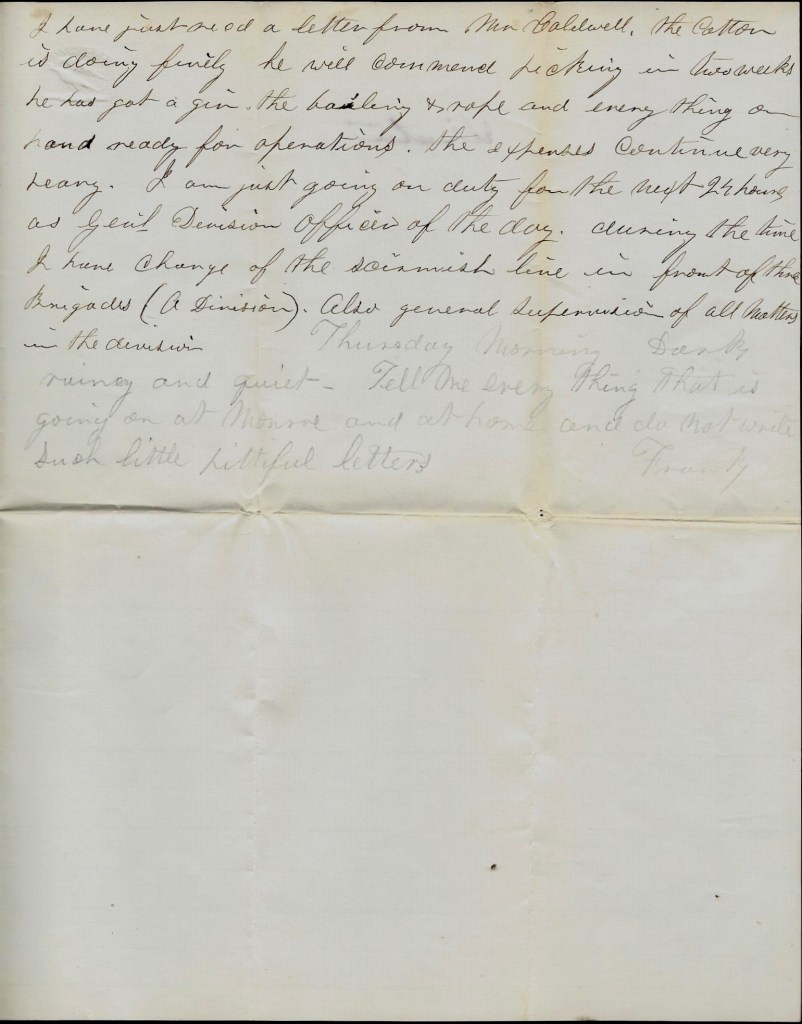 I have just recd a letter from Mr Caldwell, the Cotton
is doing finely he will commend picking in two weeks
he has got a gin. the bailing & rope and every thing on
hand ready for operations. the expenses Continue very
heavy. I am just going on duty for the next 24 hours
as Genl Devision officer of the day. during the time
I have charge of the scirmish line in front of three
Brigades (A Division). Also general supervision of all Matters
in the division
Thursday Morning Dark
rainey and quiet - Tell Me every thing that is
going on at Monroe and at home and do not write
Such little pittiful letters
Frank